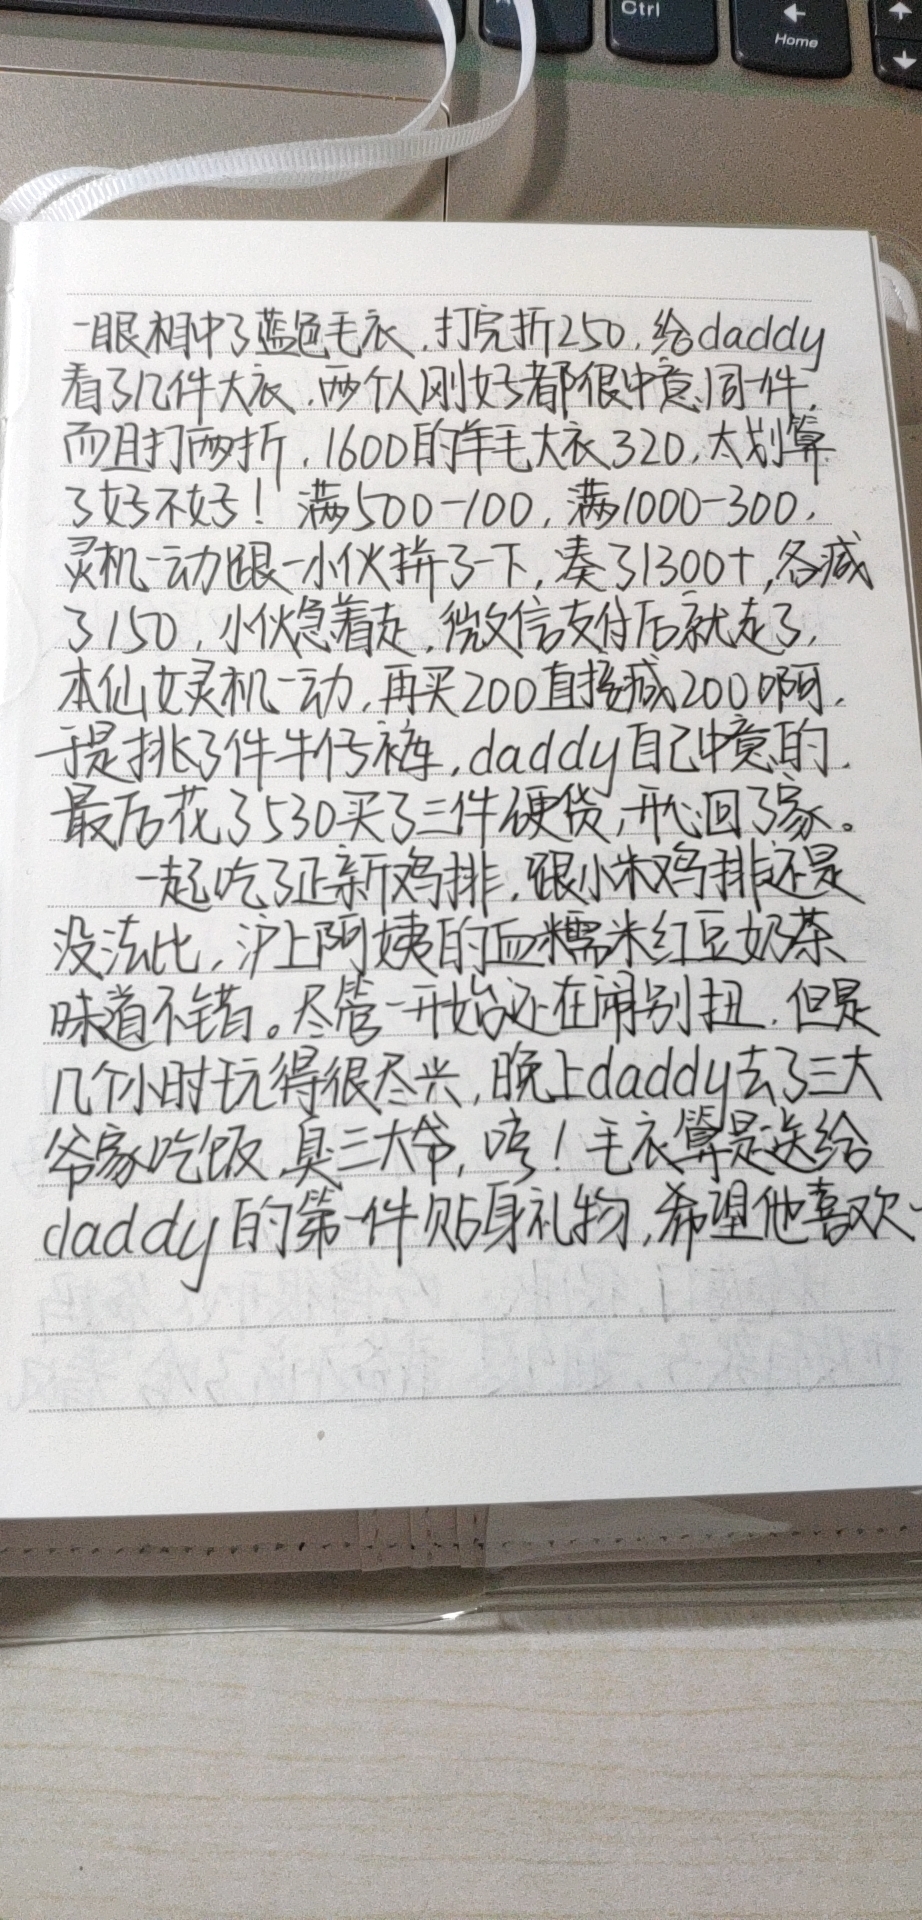 Ctrl
Home
一眼相中了蓝色毛衣，打完折250，给daddy
看了几件大衣，两个人刚好都很中意同一件，
而且打两折，1600的羊毛大衣320，太划算
了好不好！满500-100，满1000-300，
灵机一动跟一小伙拼了一下，凑了1300+，各减
了150，小伙急着走，微信支付后就走了，
本仙女灵机一动，再买200直接减200啊，
于是挑了件牛仔裤，daddy自己中意的，
最后花了530买了三件硬货，开心回了家。
一起吃了正新鸡排，跟小朱鸡排还是
没法比，沪上阿姨的血糯米红豆奶茶
味道不错。尽管一开始还在闹别扭，但是
几个小时玩得很尽兴，晚上daddy去了三大
爷家吃饭，臭三大爷，哼！毛衣算是送给
daddy的第一件贴身礼物，希望他喜欢~